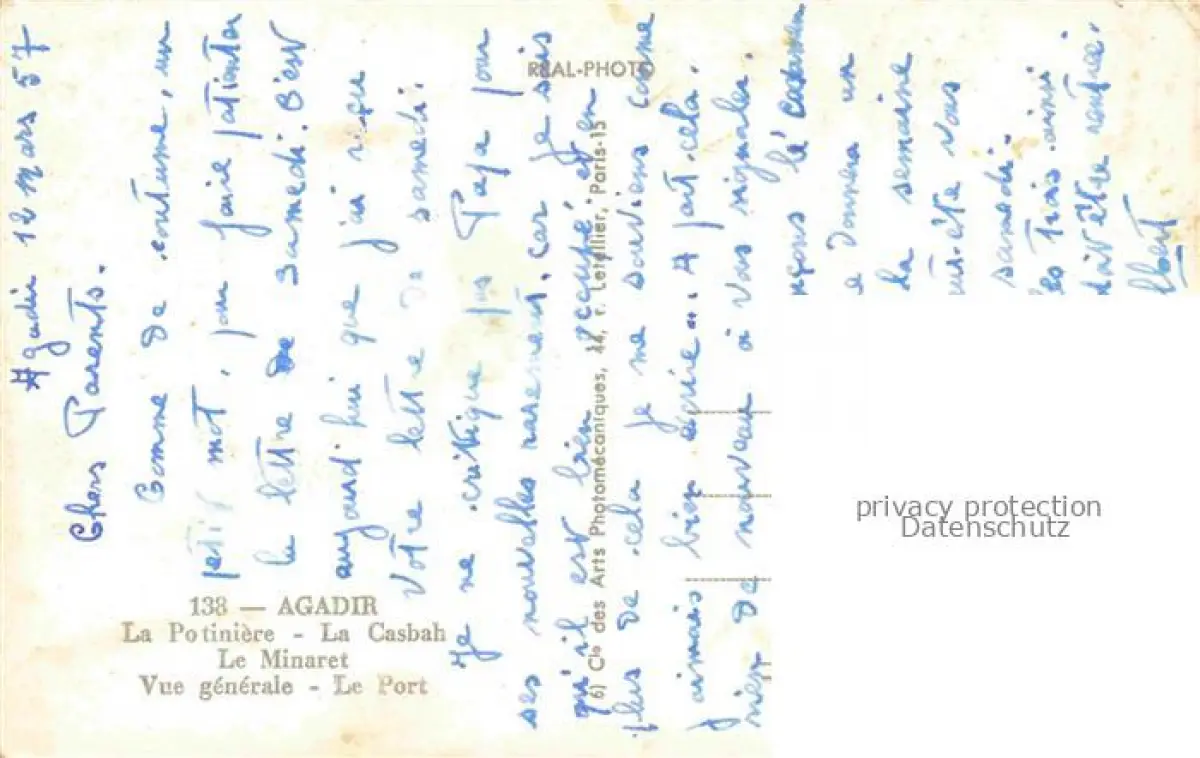 Agadir 12 mars 57
Chers Parents.
Comme de coutume, un
petit mot, pour faire patienter
la lettre de Samedi. C'est
aujourd'hui que j'ai reçu
votre lettre de samedi.
Je ne critique pas Papa pour
ses nouvelles rarement. car je sais
qu'il est bien occupé, et en
plus de cela je me souviens comme
j'aimais bien écrire... A part cela.
rien de nouveau à vous signaler.
donnera un
la semaine
vous
samedi.
ainsi
être rentrée.
REAL-PHOTO
6) Cie des Arts Photomécaniques, 44, r. Letellier, Paris-15
138 — AGADIR
La Potinière - La Casbah
Le Minaret
Vue générale - Le Port
privacy protection
Datenschutz